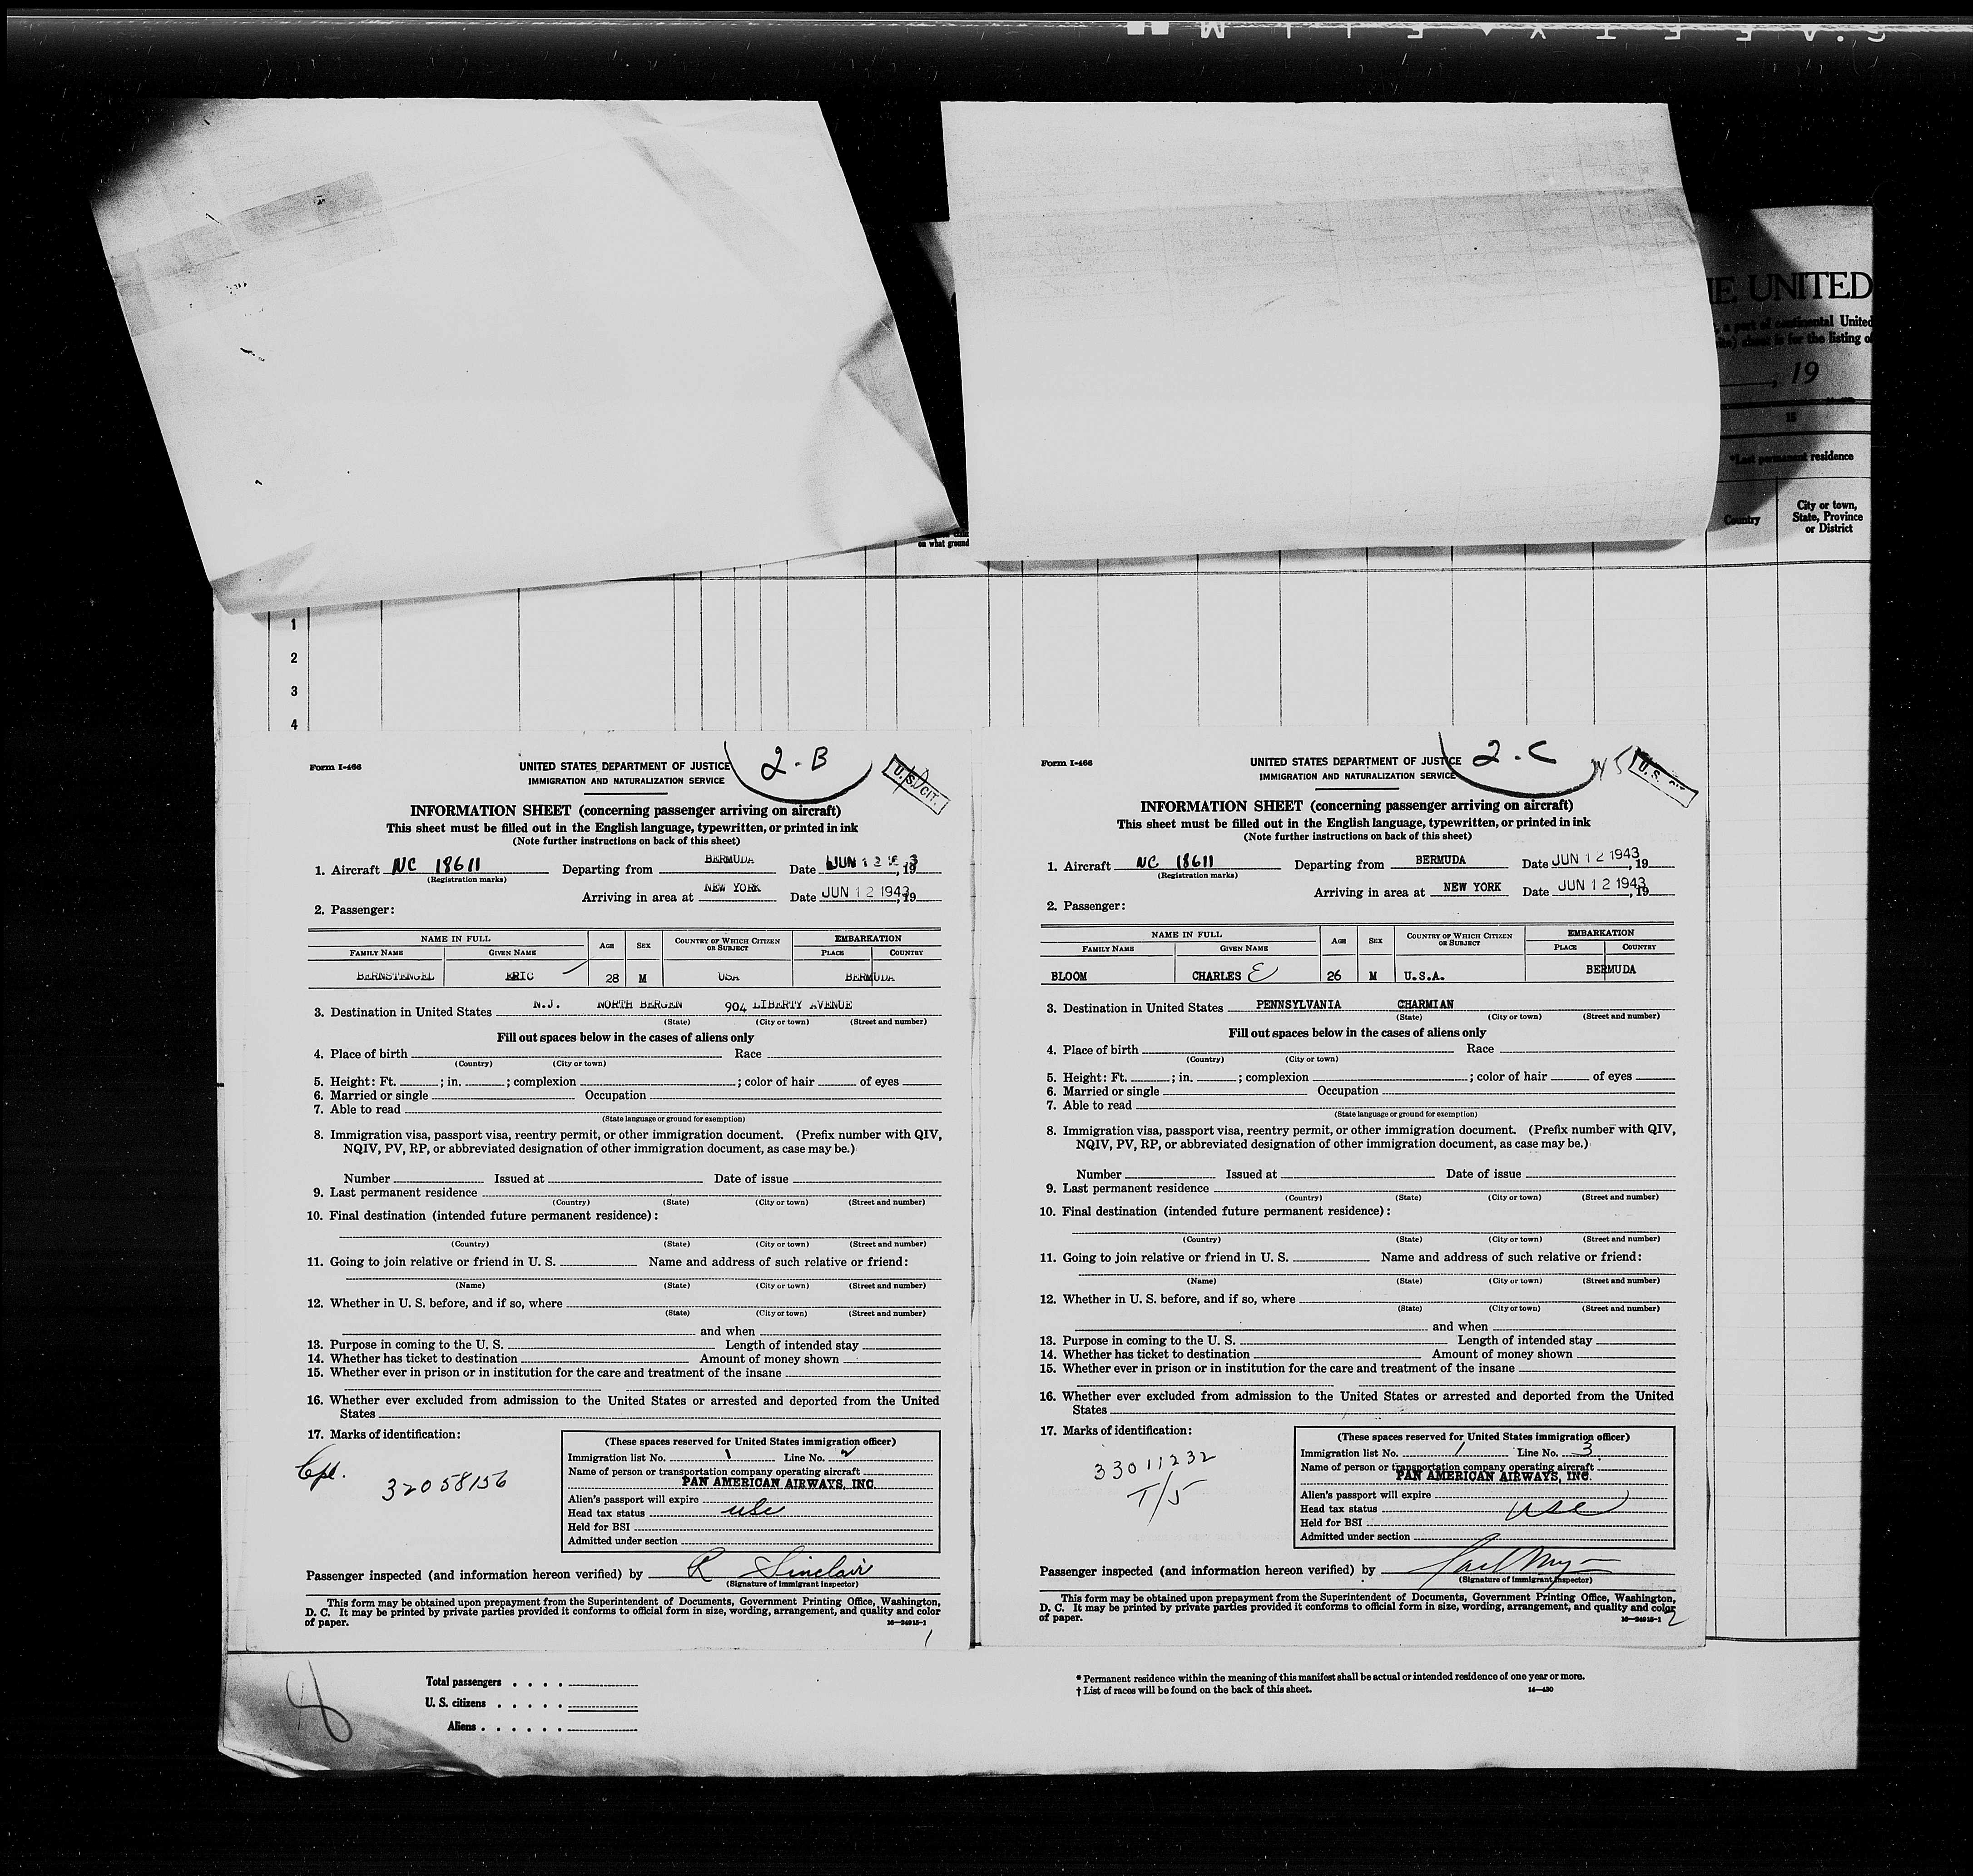 E UNITED
, a part of continental United
sheet is for the listing of
, 19
15
*Last permanent residence
Country
City or town,
State, Province
or District
on what ground
1
2
3
4
Form I-466
UNITED STATES DEPARTMENT OF JUSTICE
IMMIGRATION AND NATURALIZATION SERVICE
2-B
U.S. CIT.
INFORMATION SHEET (concerning passenger arriving on aircraft)
This sheet must be filled out in the English language, typewritten, or printed in ink
(Note further instructions on back of this sheet)
1. Aircraft NC 18611 Departing from BERMUDA Date JUN 12 , 19
(Registration marks)
Arriving in area at NEW YORK Date JUN 12 1943, 19
2. Passenger:
NAME IN FULL AGE SEX COUNTRY OF WHICH CITIZEN OR SUBJECT EMBARKATION
FAMILY NAME GIVEN NAME PLACE COUNTRY
BERNSTENGEL ERIC 28 M USA BERMUDA
3. Destination in United States N.J. NORTH BERGEN 904 LIBERTY AVENUE
(State) (City or town) (Street and number)
Fill out spaces below in the cases of aliens only
4. Place of birth Race
(Country) (City or town)
5. Height: Ft. ; in. ; complexion ; color of hair of eyes
6. Married or single Occupation
7. Able to read
(State language or ground for exemption)
8. Immigration visa, passport visa, reentry permit, or other immigration document. (Prefix number with QIV,
NQIV, PV, RP, or abbreviated designation of other immigration document, as case may be.)
Number Issued at Date of issue
9. Last permanent residence
(Country) (State) (City or town) (Street and number)
10. Final destination (intended future permanent residence):
(Country) (State) (City or town) (Street and number)
11. Going to join relative or friend in U. S. Name and address of such relative or friend:
(Name) (State) (City or town) (Street and number)
12. Whether in U. S. before, and if so, where
(State) (City or town) (Street and number)
and when
13. Purpose in coming to the U. S. Length of intended stay
14. Whether has ticket to destination Amount of money shown
15. Whether ever in prison or in institution for the care and treatment of the insane
16. Whether ever excluded from admission to the United States or arrested and deported from the United
States
17. Marks of identification:
Cpl. 32058156
(These spaces reserved for United States immigration officer)
Immigration list No. 1 Line No. 2
Name of person or transportation company operating aircraft
PAN AMERICAN AIRWAYS, INC.
Alien's passport will expire
Head tax status usc
Held for BSI
Admitted under section
Passenger inspected (and information hereon verified) by R Sinclair
(Signature of immigrant inspector)
This form may be obtained upon prepayment from the Superintendent of Documents, Government Printing Office, Washington,
D. C. It may be printed by private parties provided it conforms to official form in size, wording, arrangement, and quality and color
of paper. 16—24915-1
1
Form I-466
UNITED STATES DEPARTMENT OF JUSTICE
IMMIGRATION AND NATURALIZATION SERVICE
2-C
U.S. CIT.
INFORMATION SHEET (concerning passenger arriving on aircraft)
This sheet must be filled out in the English language, typewritten, or printed in ink
(Note further instructions on back of this sheet)
1. Aircraft NC 18611 Departing from BERMUDA Date JUN 12 1943, 19
(Registration marks)
Arriving in area at NEW YORK Date JUN 12 1943, 19
2. Passenger:
NAME IN FULL AGE SEX COUNTRY OF WHICH CITIZEN OR SUBJECT EMBARKATION
FAMILY NAME GIVEN NAME PLACE COUNTRY
BLOOM CHARLES E 26 M U.S.A. BERMUDA
3. Destination in United States PENNSYLVANIA CHARMIAN
(State) (City or town) (Street and number)
Fill out spaces below in the cases of aliens only
4. Place of birth Race
(Country) (City or town)
5. Height: Ft. ; in. ; complexion ; color of hair of eyes
6. Married or single Occupation
7. Able to read
(State language or ground for exemption)
8. Immigration visa, passport visa, reentry permit, or other immigration document. (Prefix number with QIV,
NQIV, PV, RP, or abbreviated designation of other immigration document, as case may be.)
Number Issued at Date of issue
9. Last permanent residence
(Country) (State) (City or town) (Street and number)
10. Final destination (intended future permanent residence):
(Country) (State) (City or town) (Street and number)
11. Going to join relative or friend in U. S. Name and address of such relative or friend:
(Name) (State) (City or town) (Street and number)
12. Whether in U. S. before, and if so, where
(State) (City or town) (Street and number)
and when
13. Purpose in coming to the U. S. Length of intended stay
14. Whether has ticket to destination Amount of money shown
15. Whether ever in prison or in institution for the care and treatment of the insane
16. Whether ever excluded from admission to the United States or arrested and deported from the United
States
17. Marks of identification:
33011232
T/5
(These spaces reserved for United States immigration officer)
Immigration list No. 1 Line No. 3
Name of person or transportation company operating aircraft
PAN AMERICAN AIRWAYS, INC.
Alien's passport will expire
Head tax status usc
Held for BSI
Admitted under section
Passenger inspected (and information hereon verified) by
(Signature of immigrant inspector)
This form may be obtained upon prepayment from the Superintendent of Documents, Government Printing Office, Washington,
D. C. It may be printed by private parties provided it conforms to official form in size, wording, arrangement, and quality and color
of paper. 16—24915-1
2
8
Total passengers . . . .
U. S. citizens . . . . .
Aliens . . . . . .
* Permanent residence within the meaning of this manifest shall be actual or intended residence of one year or more.
† List of races will be found on the back of this sheet. 14—430